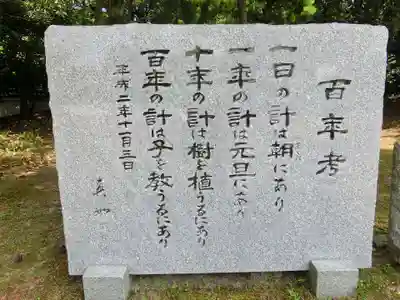 百年考
一日の計は朝にあり
一年の計は元旦にあり
十年の計は樹を植うるにあり
百年の計は子を教うるにあり
平成二年十一月三日